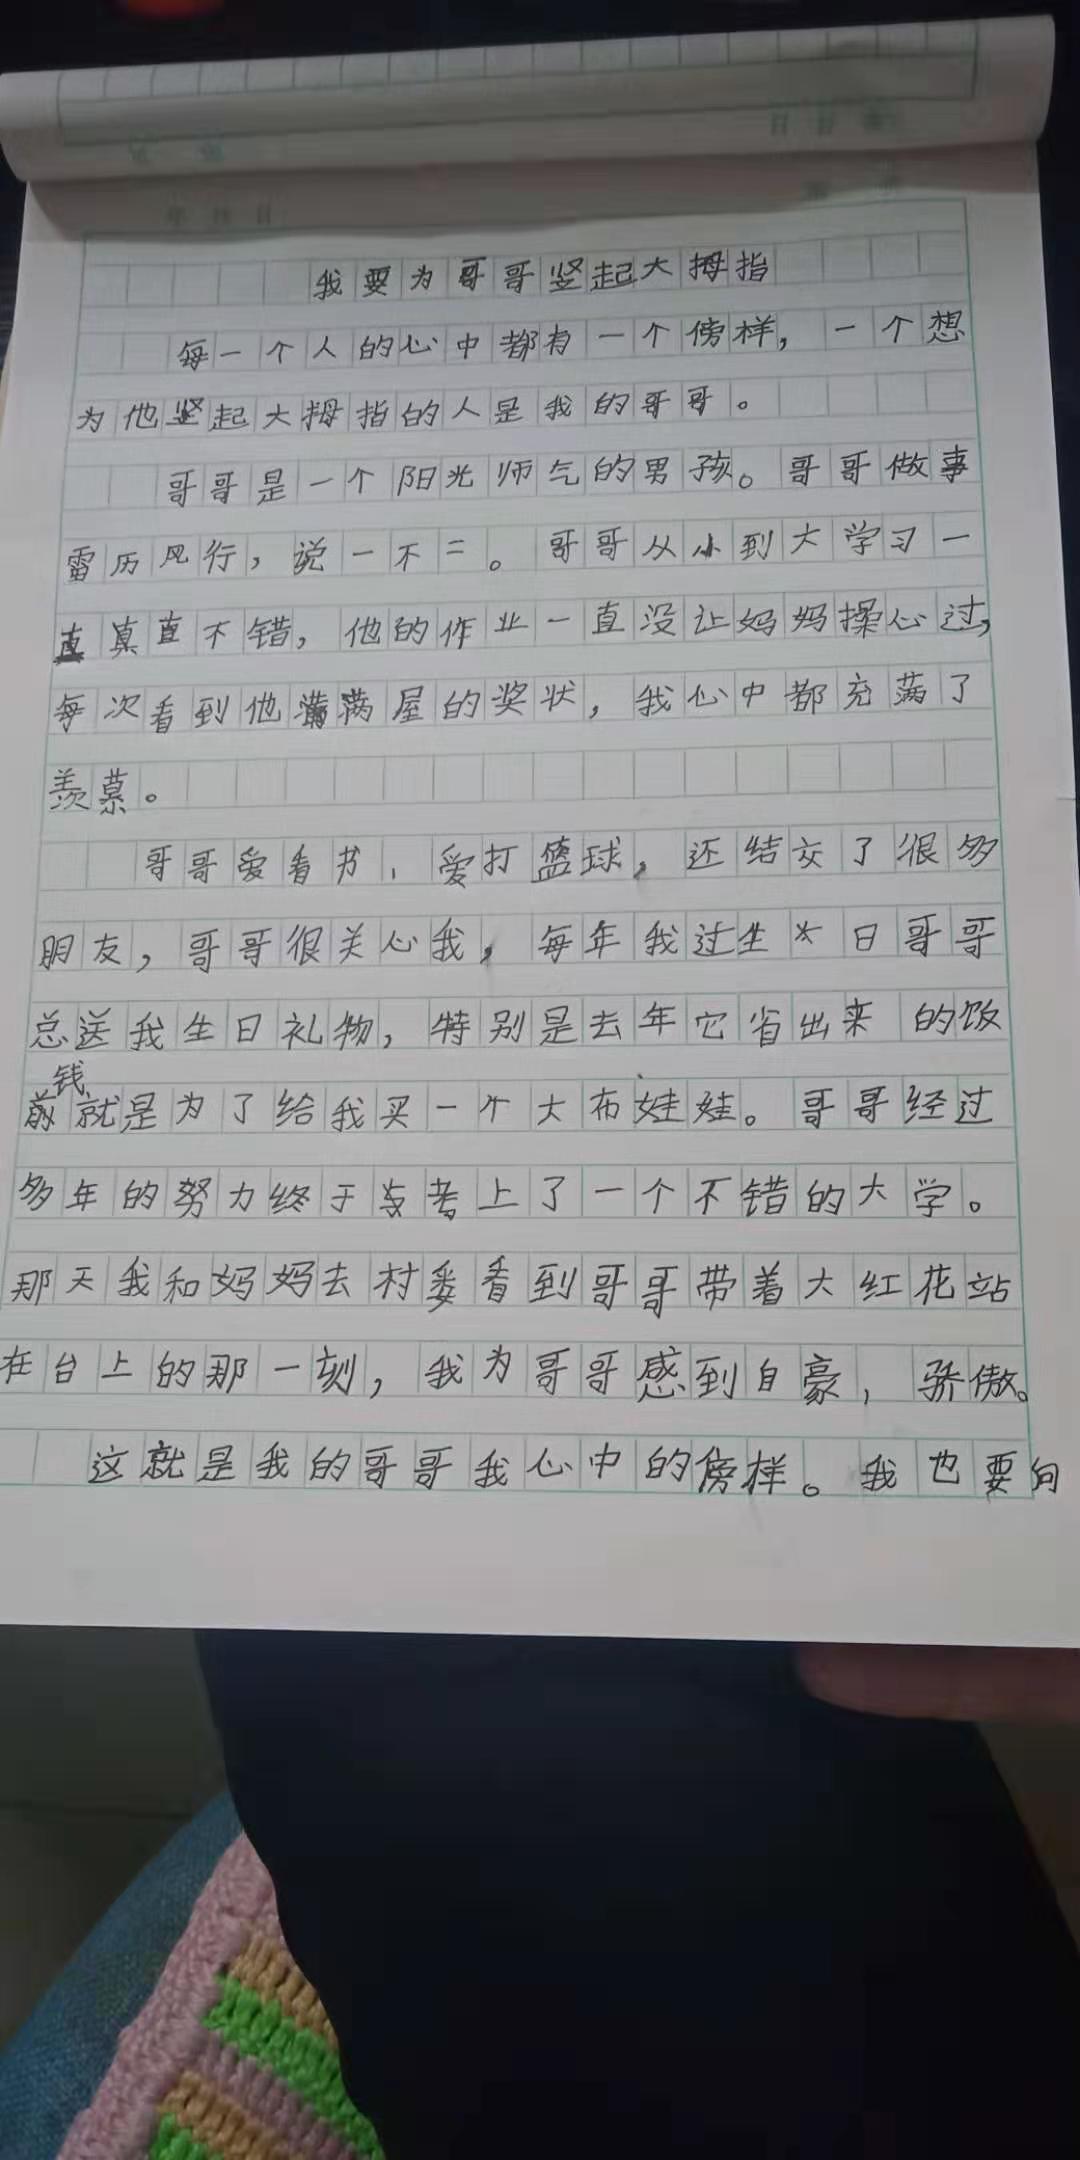 我要为哥哥竖起大拇指
每一个人的心中都有一个傍样，一个想
为他竖起大拇指的人是我的哥哥。
哥哥是一个阳光师气的男孩。哥哥做事
雷历风行，说一不二。哥哥从小到大学习一
直真直不错，他的作业一直没让妈妈操心过，
每次看到他满满屋的奖状，我心中都充满了
羡慕。
哥哥爱看书、爱打篮球，还结交了很多
朋友，哥哥很关心我，每年我过生日哥哥
总送我生日礼物，特别是去年它省出来的饭
钱
就是为了给我买一个大布娃娃。哥哥经过
多年的努力终于考上了一个不错的大学。
那天我和妈妈去村委看到哥哥带着大红花站
在台上的那一刻，我为哥哥感到自豪，骄傲。
这就是我的哥哥我心中的傍样。我也要向